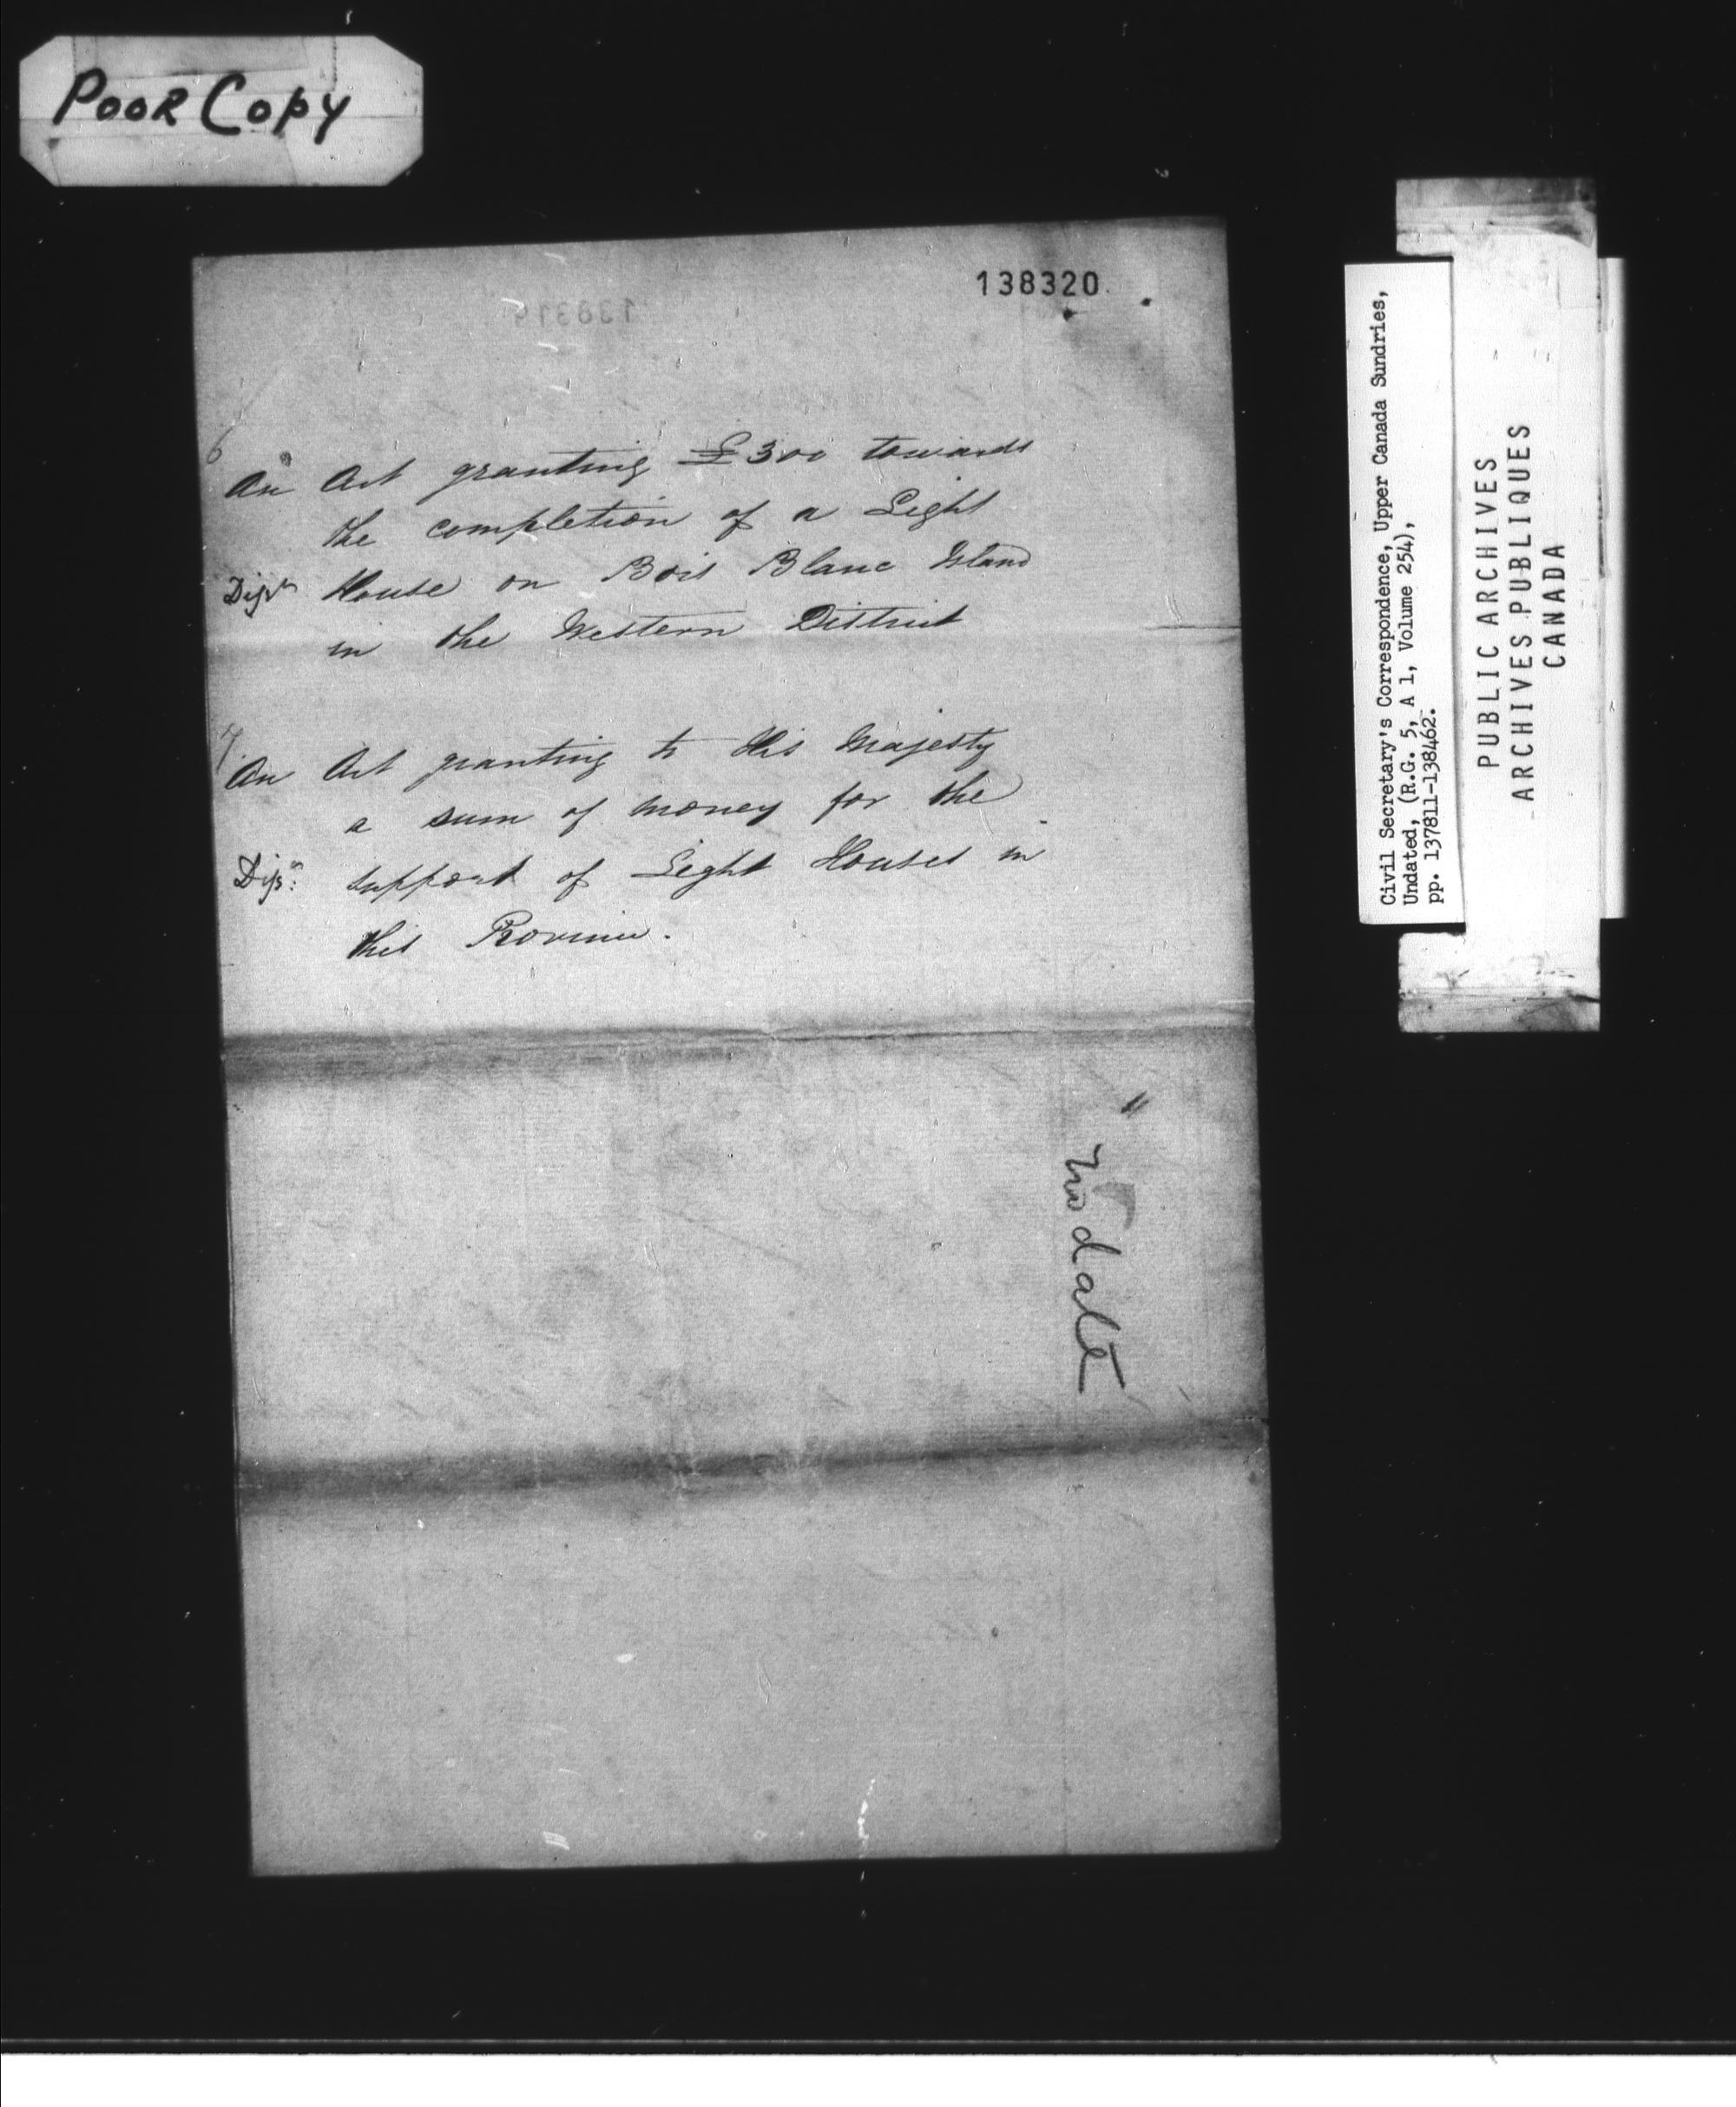 Poor Copy
138320
138319
6
An Act granting £300 towards
the completion of a Light
House on Bois Blanc Island
in the Western District
7
An Act granting to His Majesty
a sum of money for the
Disn: support of Light Houses in
this Province.
" no date
Civil Secretary's Correspondence, Upper Canada Sundries,
Undated, (R.G. 5, A 1, Volume 254),
pp. 137811-138462.
PUBLIC ARCHIVES
ARCHIVES PUBLIQUES
CANADA